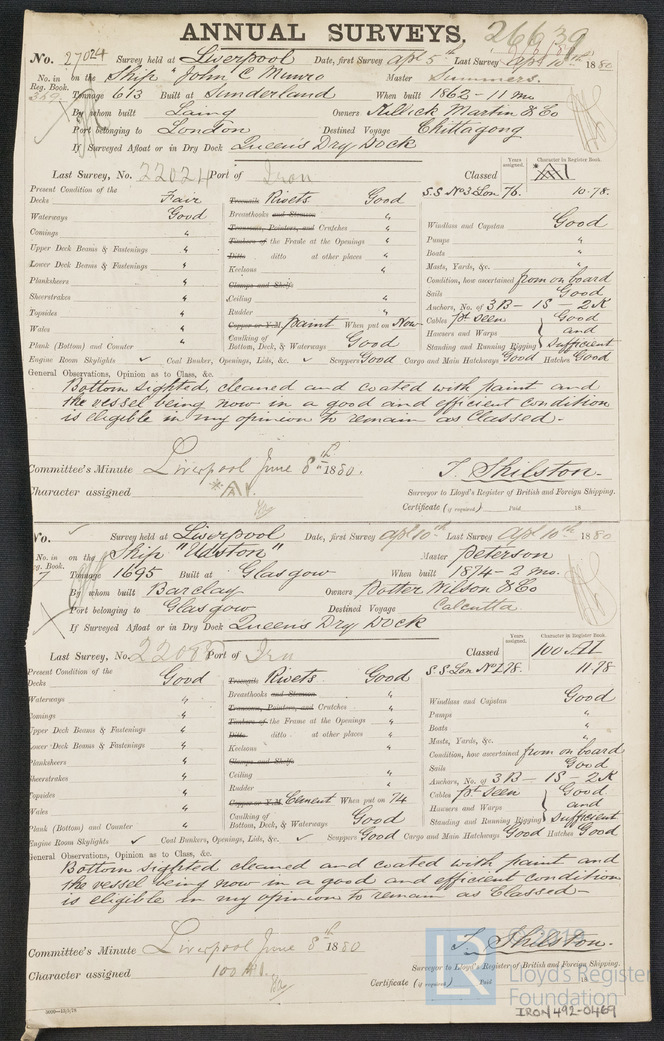 ANNUAL SURVEYS. 26639
No. 27024 Survey held at Liverpool Date, first Survey apl 5th Last Survey apl 10th 1880
No. in Reg. Book. on the Ship "John C Munro Master Summers.
Tonnage 613 Built at Sunderland When built 1862 - 11 mo
By whom built Laing Owners Killick Martin & Co
Port belonging to London Destined Voyage Chittagong
If Surveyed Afloat or in Dry Dock Queen's Dry Dock
Last Survey, No. 22024 Port of Iron Classed Years assigned. Character in Register Book.
Present Condition of the
Decks Fair Treenails Rivets Good S.S No 3 Lon 76. 10.78.
Waterways Good Breasthooks and Stemson "
Comings " Transoms, Pointers, and Crutches " Windlass and Capstan Good
Upper Deck Beams & Fastenings " Timbers of the Frame at the Openings " Pumps "
Lower Deck Beams & Fastenings " Ditto ditto at other places " Boats "
Planksheers " Keelsons " Masts, Yards, &c. "
Sheerstrakes " Clamps and Shelfs Condition, how ascertained from on board
Topsides " Ceiling " Sails Good
Wales " Rudder " Anchors, No. of 3 B - 1 S - 2 K
Plank (Bottom) and Counter " Copper or Y.M. paint When put on Now Cables pt seen Good
Caulking of Bottom, Deck, & Waterways Good Hawsers and Warps and
Standing and Running Rigging Sufficient
Engine Room Skylights ✓ Coal Bunker, Openings, Lids, &c. ✓ Scuppers Good Cargo and Main Hatchways Good Hatches Good
General Observations, Opinion as to Class, &c.
Bottom sighted, cleaned and coated with paint and
the vessel being now in a good and efficient condition
is eligible in my opinion to remain as Classed.-
Committee's Minute Liverpool June 8th 1880.
T. Skilston.
Character assigned Surveyor to Lloyd's Register of British and Foreign Shipping.
Certificate (if required) Paid 18
No. ✓ Survey held at Liverpool Date, first Survey apl 10th Last Survey apl 10th 1880
No. in Reg. Book. on the Ship "Udston" Master Peterson
7 Tonnage 1695 Built at Glasgow When built 1874 - 2 mo.
By whom built Barclay Owners Potter Wilson & Co
Port belonging to Glasgow Destined Voyage Calcutta
If Surveyed Afloat or in Dry Dock Queen's Dry Dock
Last Survey, No. Port of Iron Classed Years assigned. Character in Register Book. 100 A1
Present Condition of the
Decks Good Treenails Rivets Good S.S Lon No 1.78. 11.78
Waterways " Breasthooks and Stemson "
Comings " Transoms, Pointers, and Crutches " Windlass and Capstan Good
Upper Deck Beams & Fastenings " Timbers of the Frame at the Openings " Pumps "
Lower Deck Beams & Fastenings " Ditto ditto at other places " Boats "
Planksheers " Keelsons " Masts, Yards, &c. "
Sheerstrakes " Clamps and Shelfs Condition, how ascertained from on board
Topsides " Ceiling " Sails Good
Wales " Rudder " Anchors, No. of 3 B - 1 S - 2 K
Plank (Bottom) and Counter " Copper or Y.M. Cement When put on 74 Cables pt seen Good
Caulking of Bottom, Deck, & Waterways Good Hawsers and Warps and
Standing and Running Rigging Sufficient
Engine Room Skylights ✓ Coal Bunkers, Openings, Lids, &c. ✓ Scuppers Good Cargo and Main Hatchways Good Hatches Good
General Observations, Opinion as to Class, &c.
Bottom sighted cleaned and coated with paint and
the vessel being now in a good and efficient condition
is eligible in my opinion to remain as Classed-
Committee's Minute Liverpool June 8th 1880
T. Skilston.
Character assigned 100 A1. Surveyor to Lloyd's Register of British and Foreign Shipping.
Certificate (if required) Paid 18
LR
Lloyd's Register
Foundation
IRON 492-0469